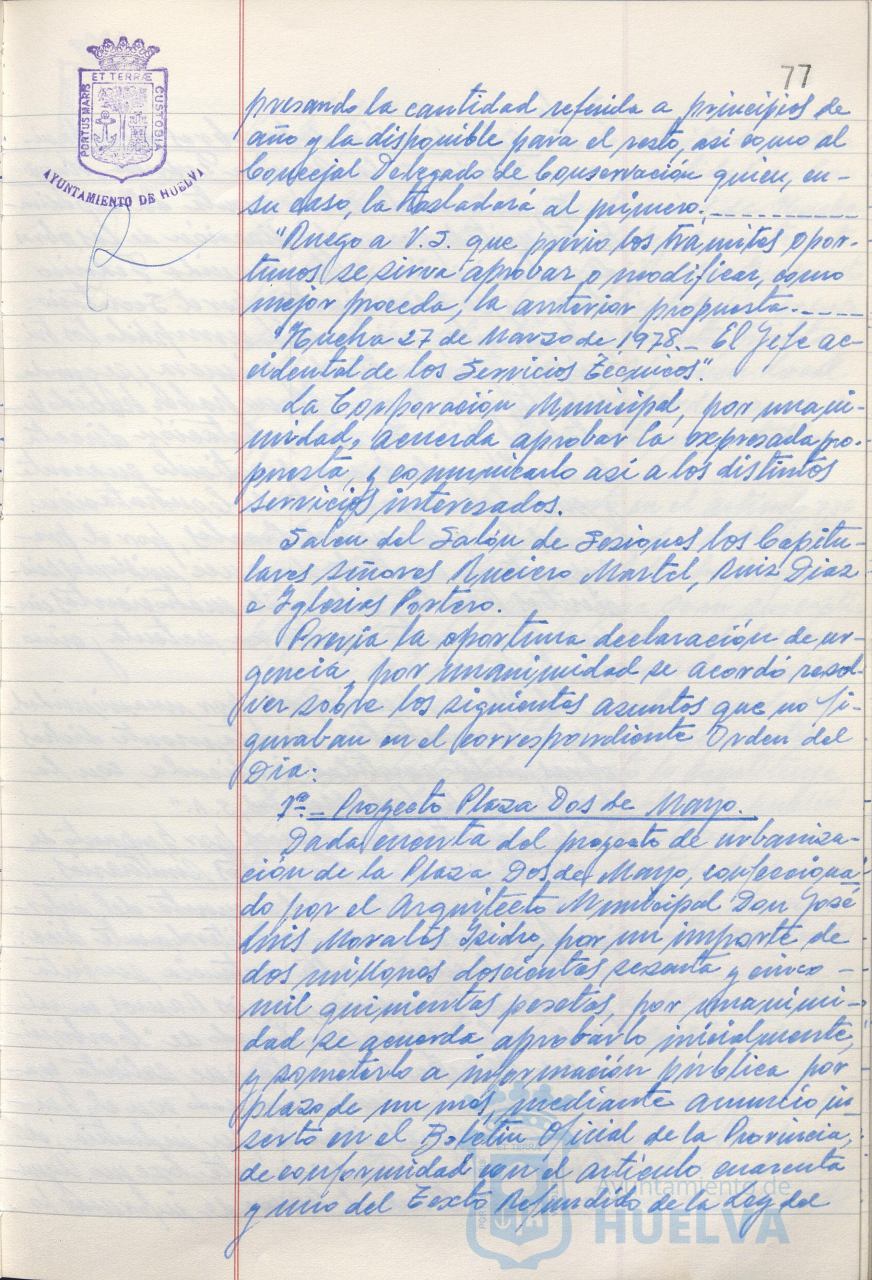 77
ET TERRÆ
PORTUS MARIS
CUSTODIA
AYUNTAMIENTO DE HUELVA
presando la cantidad referida a principios de
año y la disponible para el resto, así como al
Concejal Delegado de Conservación quien, en-
su caso, la trasladará al primero.
"Ruego a V.I. que previo los trámites opor-
tunos se sirva aprobar o modificar, como
mejor proceda, la anterior propuesta.
"Huelva 27 de Marzo de 1978.- El Jefe ac-
cidental de los Servicios Técnicos".
La Corporación Municipal, por unani-
midad, acuerda aprobar la expresada pro-
puesta, y comunicarlo así a los distintos
servicios interesados.
Salen del Salón de Sesiones los Capitu-
lares señores Ruciero Martel, Ruiz Diaz
e Iglesias Portero.
Previa la oportuna declaración de ur-
gencia, por unanimidad se acordó resol-
ver sobre los siguientes asuntos que no fi-
guraban en el correspondiente Orden del
Dia:
1º.- Proyecto Plaza Dos de Mayo.
Dada cuenta del proyecto de urbaniza-
ción de la Plaza Dos de Mayo, confecciona-
do por el Arquitecto Municipal Don José
Luis Morales Isidro, por un importe de
dos millones doscientas sesenta y cinco -
mil quinientas pesetas, por unanimi-
dad se acuerda aprobarlo inicialmente,
y someterlo a información pública por
plazo de un mes, mediante anuncio in-
serto en el Boletin Oficial de la Provincia,
de conformidad con el artículo cuarenta
y uno del Texto Refundido de la Ley del
Ayuntamiento de
HUELVA